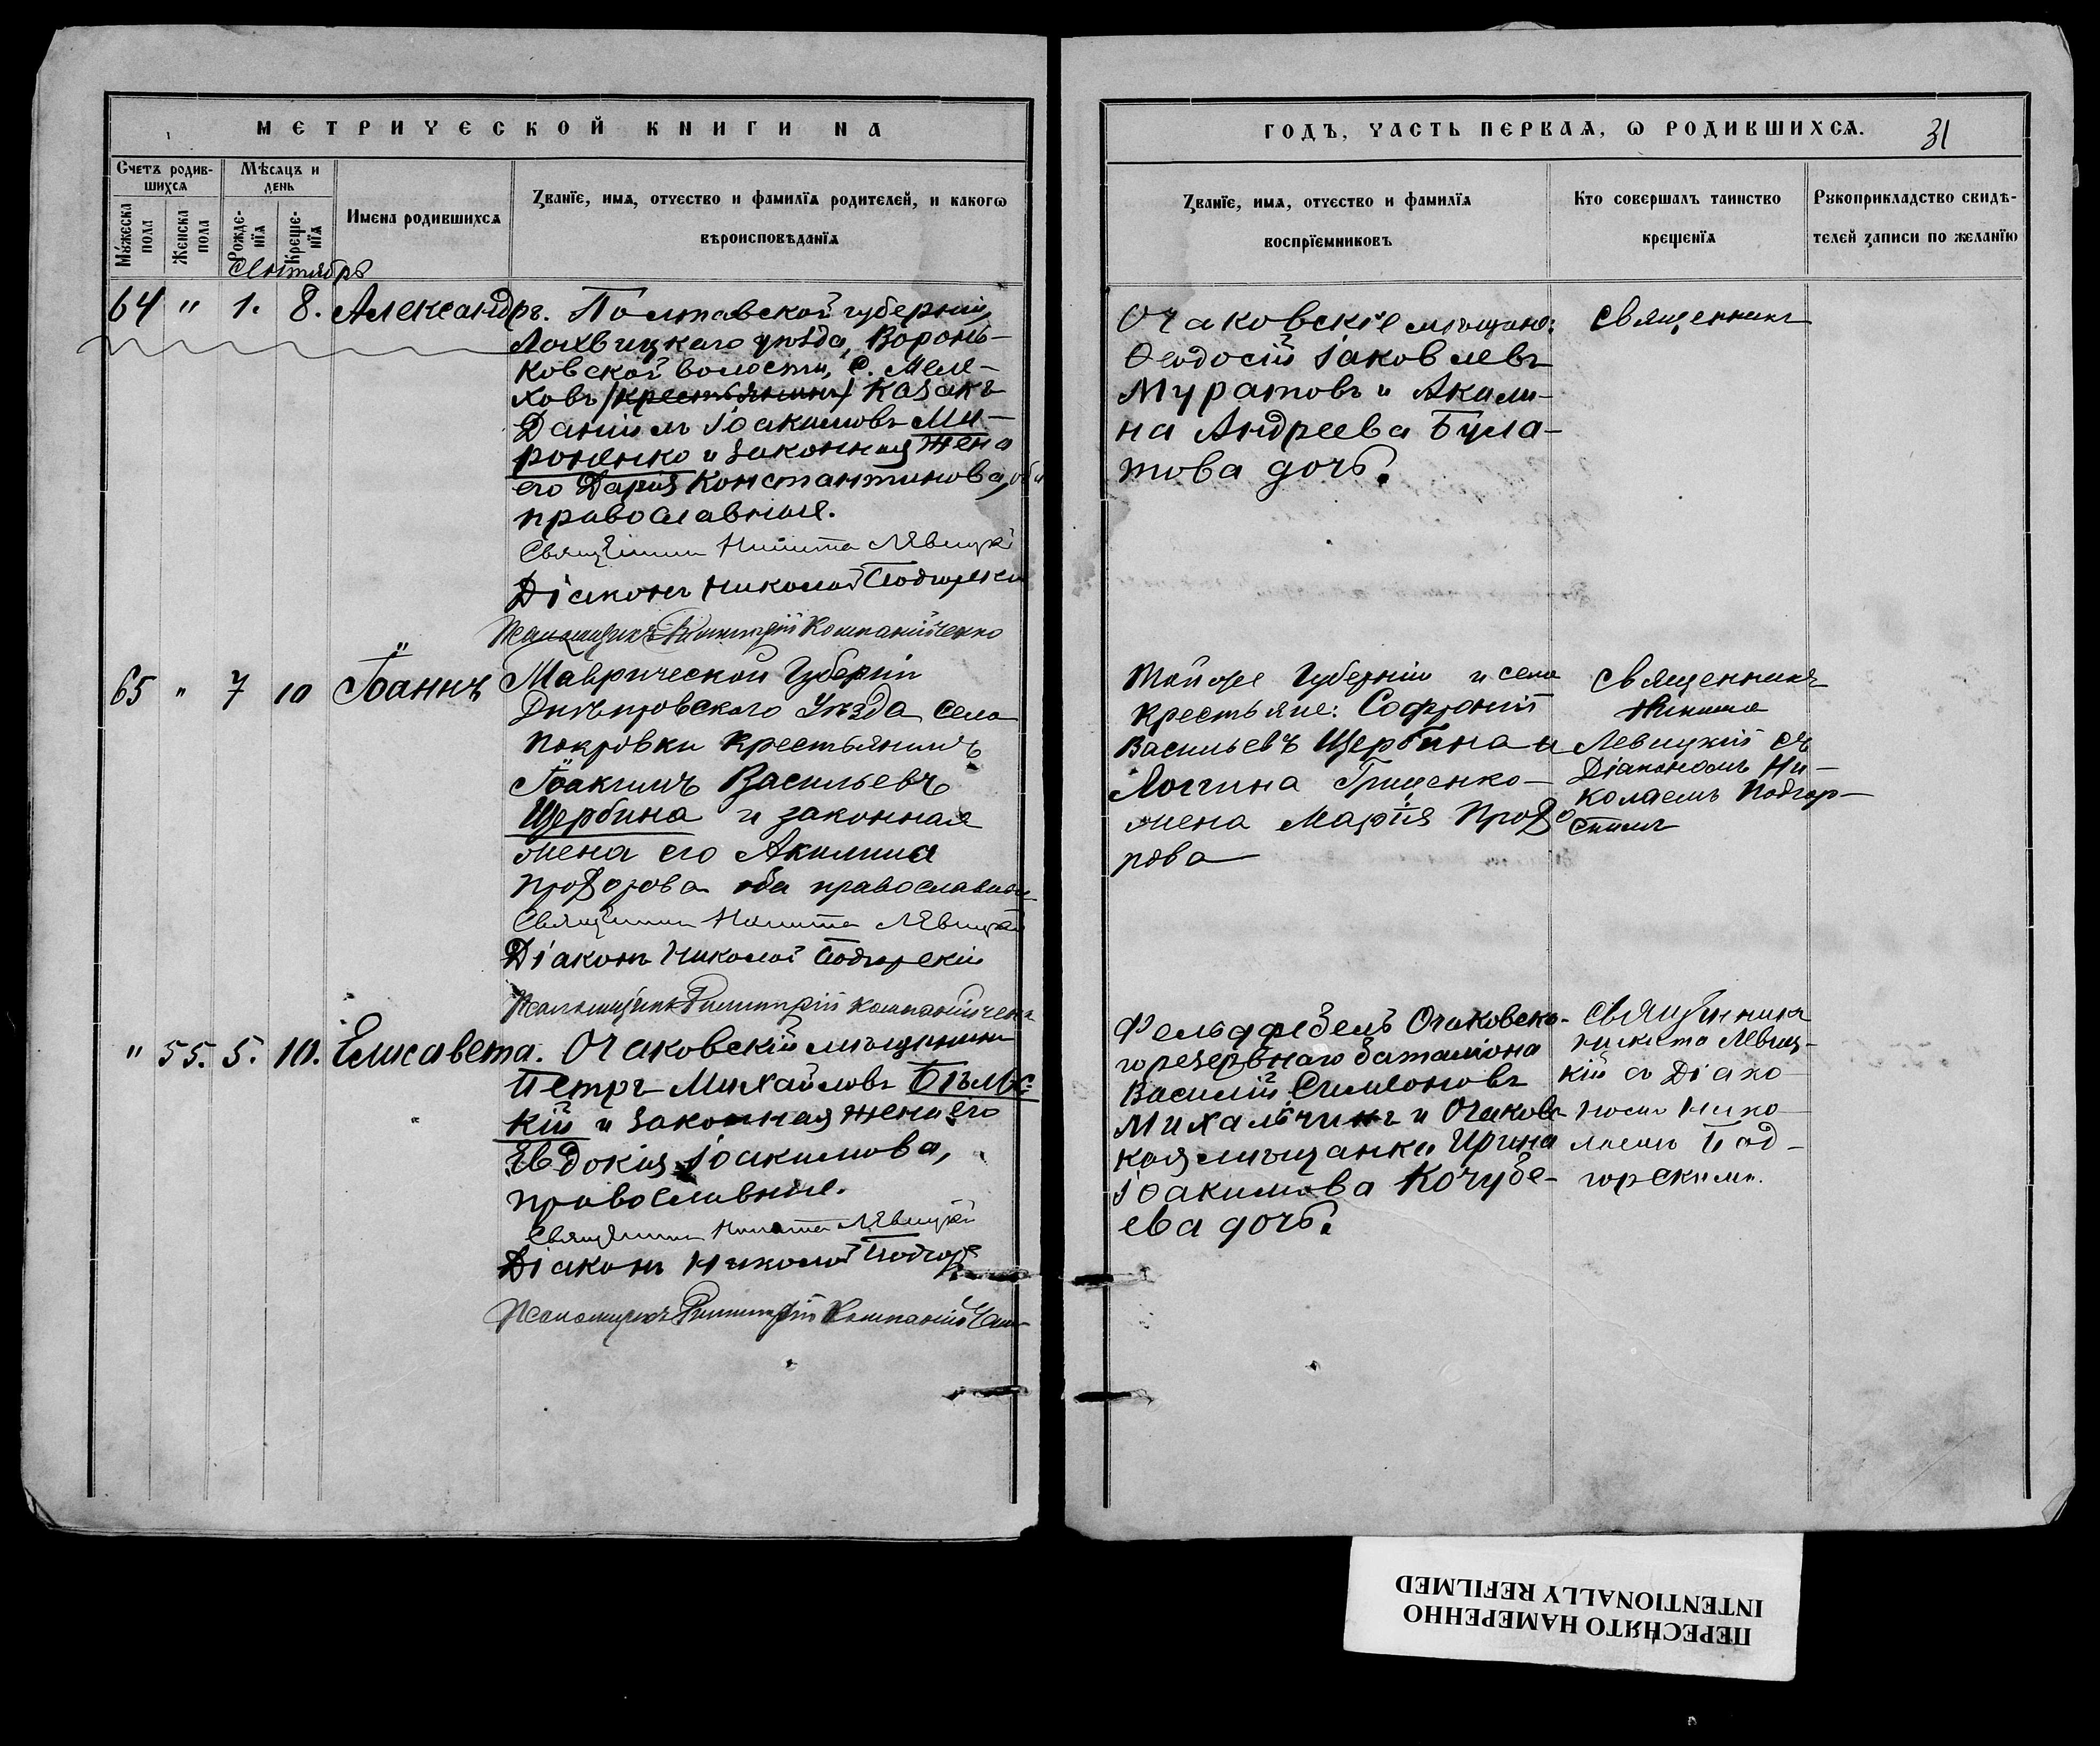 МЕТРИЧЕСКОЙ КНИГИ НА
Счетъ родив-
шихсѧ
Мѣсѧцъ и
день
Мꙋжеска
пола
Женска
пола
Рожде-
нїѧ
Креще-
нїѧ
Имена родившихсѧ
Ꙁванїе, имѧ, отчество и фамилїѧ родителей, и какогѡ
вѣроисповѣданїѧ
Сентябрь
64 " 1. 8. Александръ. Полтавской губерніи,
Лохвицкаго уѣзда, Воронь-
ковской волости, с. Меле-
ховъ (крестьянинъ) казакъ
Даніилъ Іоакимовъ Ми-
роненко и законная жена
его Дарія Константинова, оба
православные.
Священникъ Никита Левицкій
Діаконъ Николай Подгорскій
Псаломщикъ Димитрій Компанійченко
65 " 7 10 Іоаннъ
Таврической Губерніи
Днѣпровскаго Уѣзда села
Покровки крестьянинъ
Іоакимъ Васильевъ
Щербина и законная
жена его Акилина
Прохорова оба православные
Священникъ Никита Левицкій
Діаконъ Николай Подгорскій
Псаломщикъ Димитрій Компанійченко
" 55. 5. 10. Елисавета. Очаковскій мѣщанинъ
Петръ Михайловъ Бѣльс-
кій и законная жена его
Евдокія Іоакимова,
православные.
Священникъ Никита Левицкій
Діаконъ Николай Подгор
Псаломщикъ Димитрій Компанійчен
ГОДЪ, ЧАСТЬ ПЕРВАѦ, Ѡ РОДИВШИХСѦ.
31
Ꙁванїе, имѧ, отчество и фамилїѧ
воспрїемниковъ
Кто совершалъ таинство
крещенїѧ
Рꙋкоприкладство свидѣ-
телей ꙁаписи по желанїю
Очаковскіе мѣщане:
Ѳеодосій Іаковлевъ
Муратовъ и Акили-
на Андреева Була-
това дочь.
Священникъ
Той же Губерніи и села
крестьяне: Софроній
Васильевъ Щербина и
Логгина Гриценко
жена Марія Прохо
рова
Священникъ
Никита
Левицкій съ
Діакономъ Ни-
колаемъ Подгор-
скимъ
Фельдфебель Очаковска-
го резервнаго баталіона
Василій Симеоновъ
Михальчикъ и Очаковс
кая мѣщанка Ирина
Іоакимова Кочубе-
ева дочь.
Священникъ
Никита Левиц-
кій съ Діако
номъ Нико
лаемъ Под-
горскимъ.
ПЕРЕСНЯТО НАМЕРЕННО
INTENTIONALLY REFILMED